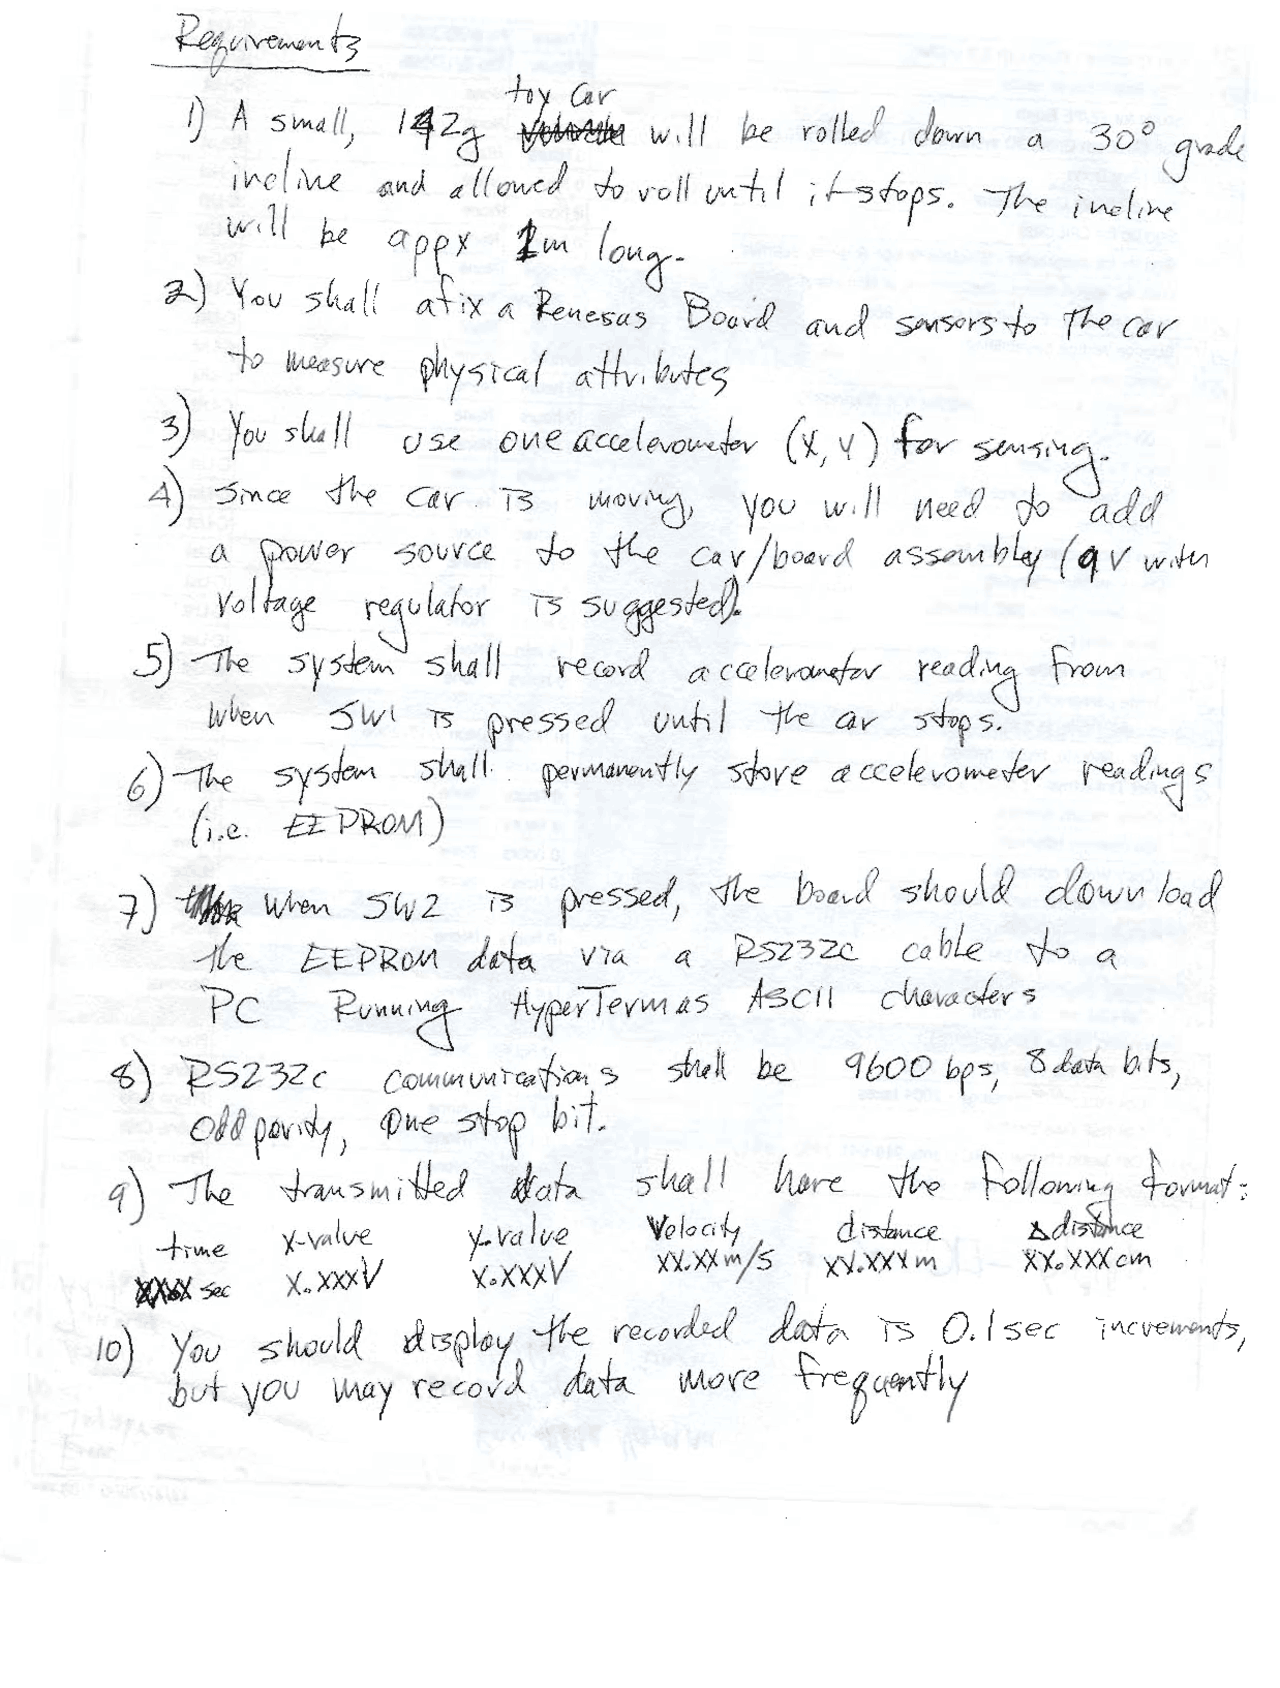 Requirements
toy car
1) A small, 142g will be rolled down a 30° grade
incline and allowed to roll until it stops. The incline
will be appx 1m long.
2) You shall afix a Renesas Board and sensors to The car
to measure physical attributes
3) You shall use one accelerometer (X, Y) for sensing.
4) Since the car is moving, you will need to add
a power source to the car/board assembly (9V with
voltage regulator is suggested).
5) The system shall record accelerometer reading from
when SW1 is pressed until the car stops.
6) The system shall permanently store accelerometer readings
(i.e. EEPROM)
7) when SW2 is pressed, the board should download
the EEPROM data via a RS232c cable to a
PC Running HyperTerm as ASCII characters
8) RS232c communications shall be 9600 bps, 8 data bits,
odd parity, one stop bit.
9) The transmitted data shall have the following format:
time x-value y-value Velocity distance Δ distance
sec X.XXXV X.XXXV XX.XX m/s XX.XXX m XX.XXX cm
10) You should display the recorded data is 0.1 sec increments,
but you may record data more frequently